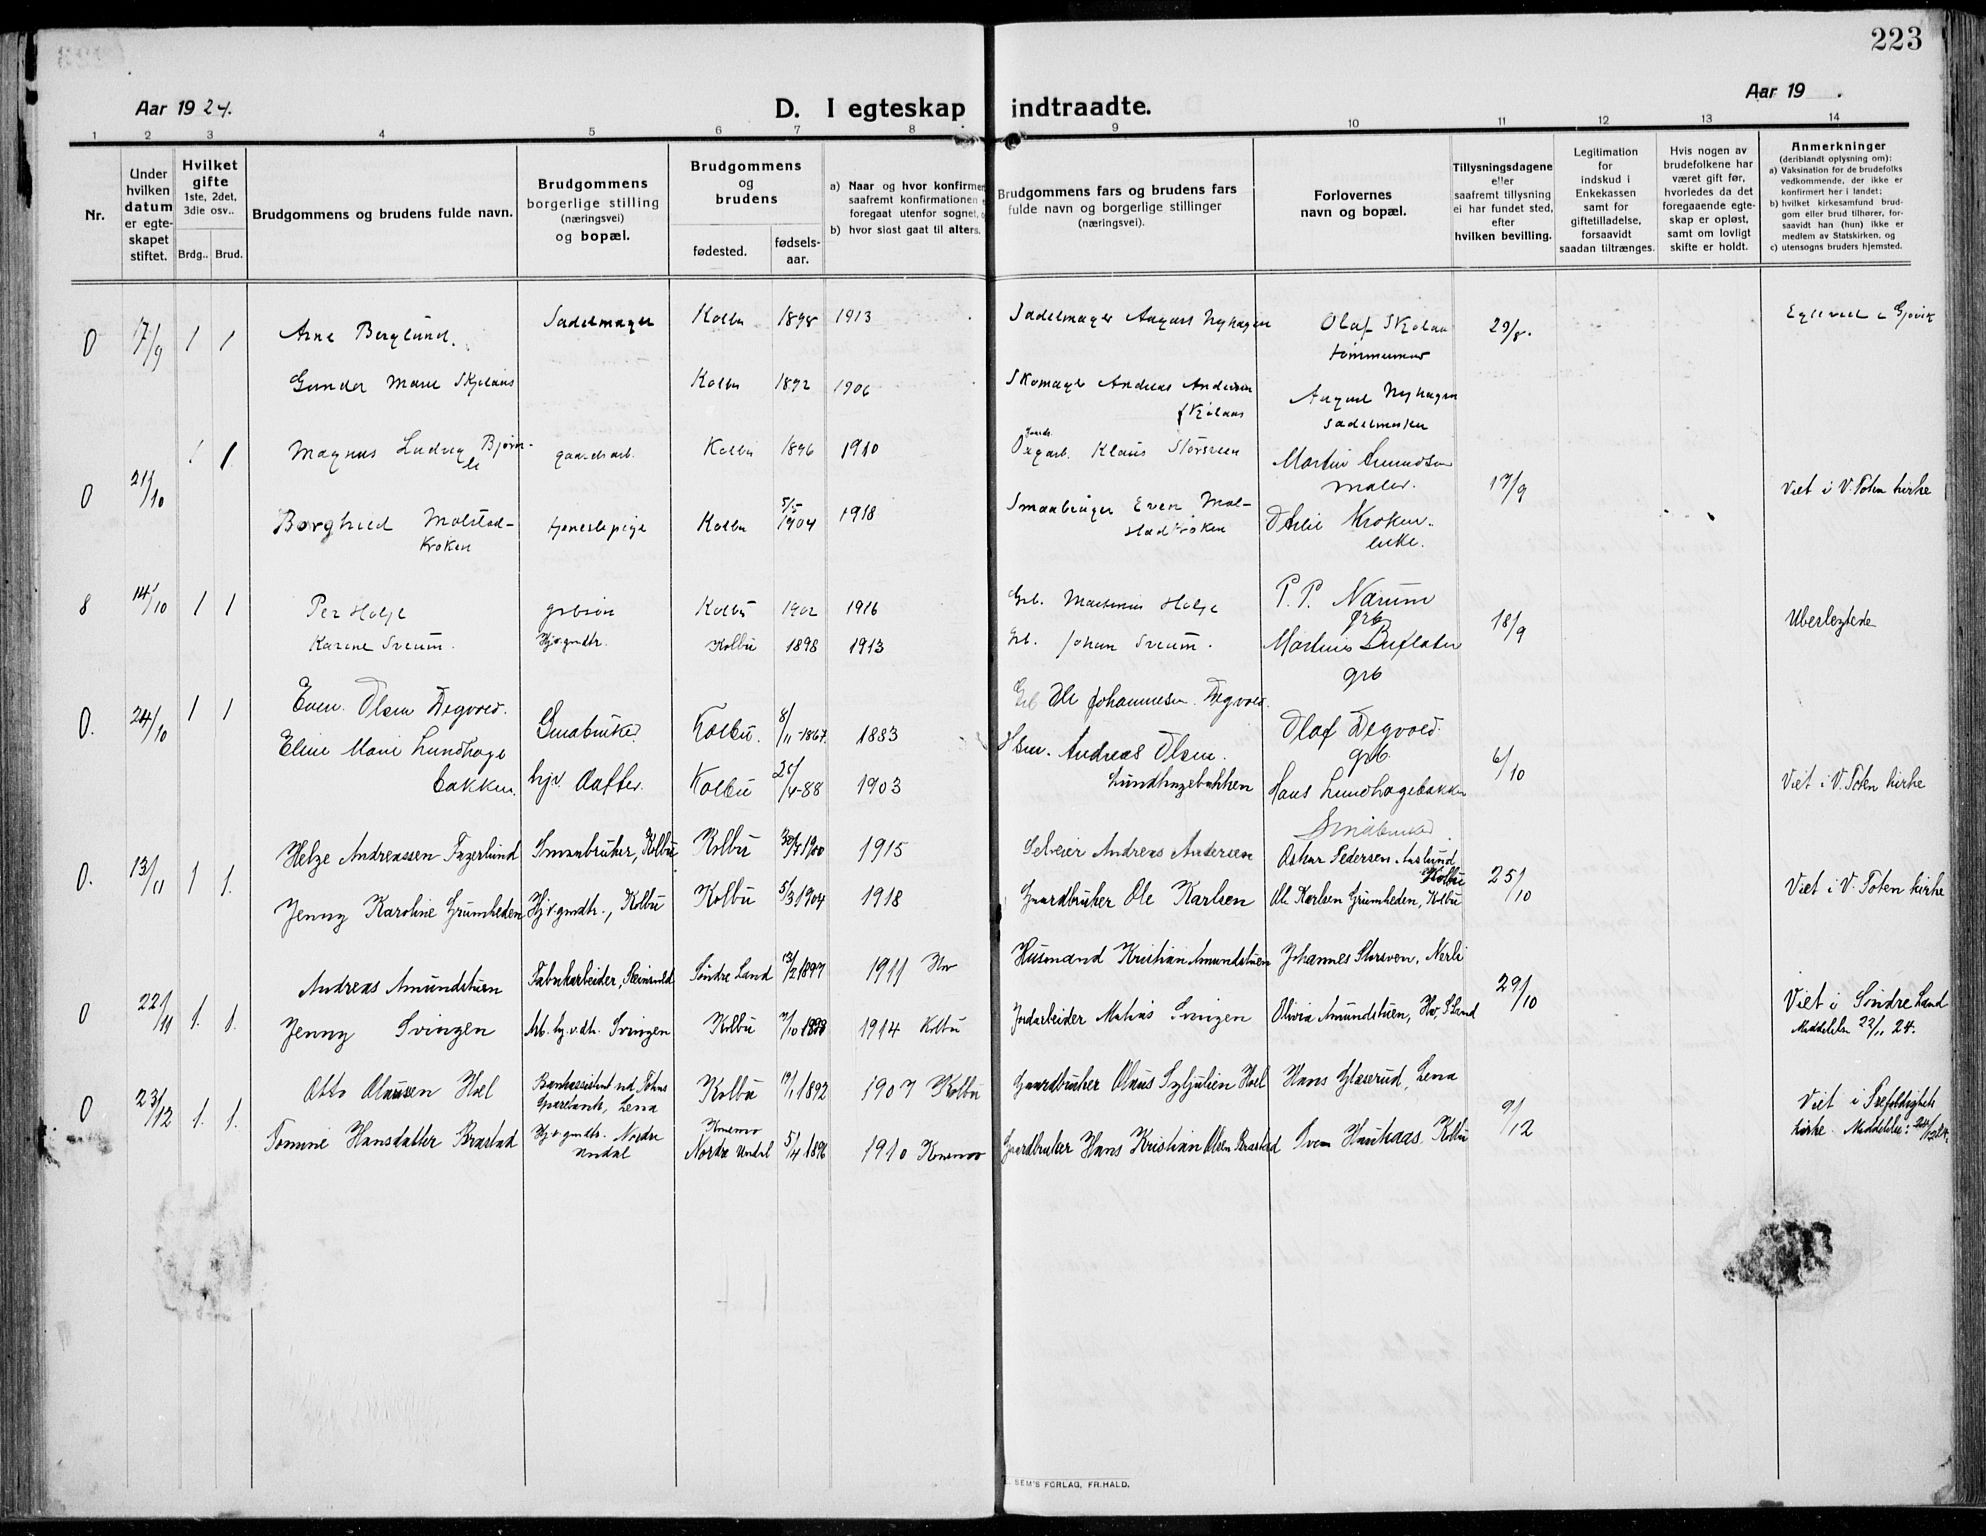 223
Aar 1924.
D. I egteskap indtraadte.
Aar 19 .
1 2 3 4 5 6 7 8 9 10 11 12 13 14
Nr.
Under hvilken datum er egteskapet stiftet.
Hvilket gifte 1ste, 2det, 3die osv..
Brdg.. Brud.
Brudgommens og brudens fulde navn.
Brudgommens borgerlige stilling (næringsvei) og bopæl.
Brudgommens og brudens
fødested.
fødselsaar.
a) Naar og hvor konfirmer
saafremt konfirmationen
foregaat utenfor sognet,
b) hvor sidst gaat til alters.
Brudgommens fars og brudens fars
fulde navn og borgerlige stillinger
(næringsvei).
Forlovernes
navn og bopæl.
Tillysningsdagene
eller
saafremt tillysning
ei har fundet sted,
efter
hvilken bevilling.
Legitimation
for
indskud i
Enkekassen
samt for
giftetilladelse,
forsaavidt
saadan tiltrænges.
Hvis nogen av
brudefolkene har
været gift før,
hvorledes da det
foregaaende egte-
skap er opløst,
samt om lovligt
skifte er holdt.
Anmerkninger
(deriblandt oplysning om):
a) Vaksination for de brudefolks
vedkommende, der ikke er
konfirmert her i landet;
b) hvilket kirkesamfund brud-
gom eller brud tilhører, for-
saavidt han (hun) ikke er
medlem av Statskirken, og
c) utensogns bruders hjemsted.
0 7/9 1 1 Arne Berglund. Sadelmager Kolbu 1898 1913 Sadelmager August Nyhagen Olaf Skjelaa 29/8. Gjøvik
tømmermand
Gunder Marie Skjelaas Kolbu 1892 1906 Skomager Andreas Andersen August Nyhagen
Skjelaas Sadelmaker
0 21/10 1 1 Magnus Ludvig Bjørn- gaardsarb. Kolbu 1896 1910 Klaus Storsveen Martin Amundsen 17/9 Viet i V. Toten kirke
li maler.
Borghild Molstad- tjenestepige Kolbu 5/5 1904 1918 Smaabruger Even Mol- Kroken
Kroken stadkroken enke.
8 14/10 1 1 Per Holje grbsøn Kolbu 1902 1916 Grb. Martinius Holje P. P. Narum 18/9 Ubeslegtede
grb
Karene Sveum. Hj. v. gmdtr. Kolbu 1898 1913 Grb. Johan Sveum. Martinus Buflaten
grb
0. 24/10 1 1 Even Olsen Degvold. Smabruker Kolbu. 8/11-1867 1883 Grb Ole Johannesen Degvold. Olaf Degvold. 6/10 Viet i V. Toten kirke
grb.
Eline Marie Lundhage hjv. datter. Kolbu 26/4-88 1903 Hsm. Andreas Olsen Hans Lundhagebakken
bakken. Lundhagebakken Småbruker
0. 13/11 1 1. Helge Andreassen Fagerlund Smaabruker, Kolbu Kolbu 30/7 1900 1915 Selveier Andreas Andersen Oskar Pedersen Aaslund 25/10 Viet i V. Toten kirke
Kolbu
Jenny Karoline Grumheden Hj. v. gmdtr., Kolbu Kolbu 5/3 1904 1918 Gaardbruker Ole Karlsen Ole Karlsen Grumheden, Kolbu
0 22/11 1. 1. Andreas Amundstuen Fabrikarbeider, Søndre Land 13/2 1897 1911 Hov Husmand Kristian Amundstuen Johannes Storsveen, Nerli 29/10 Viet i Søndre Land
Meddelelse 22/11 24.
Jenny Svingen Arb. hj. v. dtr. Svingen Kolbu 1914 Kolbu Jordarbeider Matias Svingen Olivia Amundstuen, Hov, S. Land
0 23/12 1. 1. Otto Olaussen Hoel Bankassistent ved Totens Kolbu 19/1 1892 1907 Kolbu Gaardbruker Olaus Syljulien Hoel Hans Glæserud, Lena 9/12 Viet i Trefoldighets
Sparebank, Lena kirke. Meddelelse:
Tomine Hansdatter Brastad Hj. v. gmdtr. Nordre Undal Konsmo Nordre Undal 5/4 1896 1910 Konsmo Gaardbruker Hans Kristian Olsen Brastad Sven Haukaas, Kolbu
SEM'S FORLAG, FR.HALD.